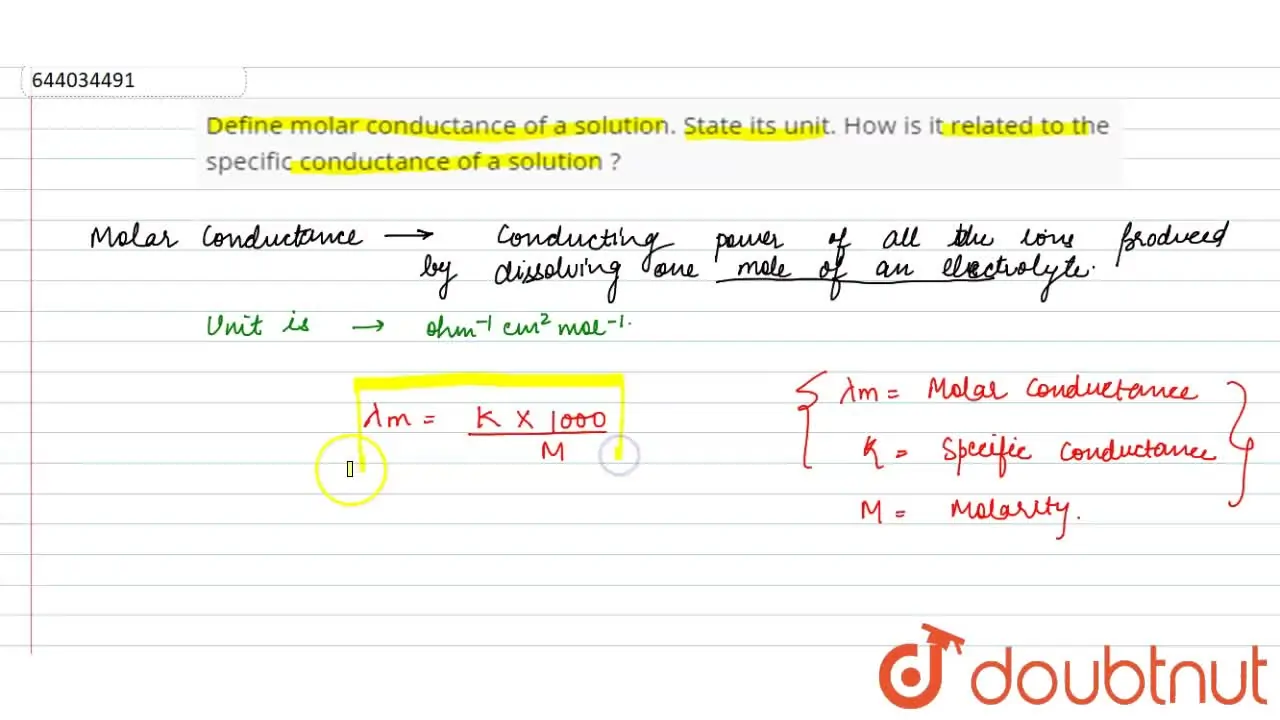 644034491
Define molar conductance of a solution. State its unit. How is it related to the
specific conductance of a solution ?
Molar Conductance → Conducting power of all the ions produced
by dissolving one mole of an electrolyte.
Unit is → ohm⁻¹ cm² mol⁻¹.
λm = K × 1000
M
λm = Molar Conductance
K = Specific Conductance
M = Molarity.
doubtnut